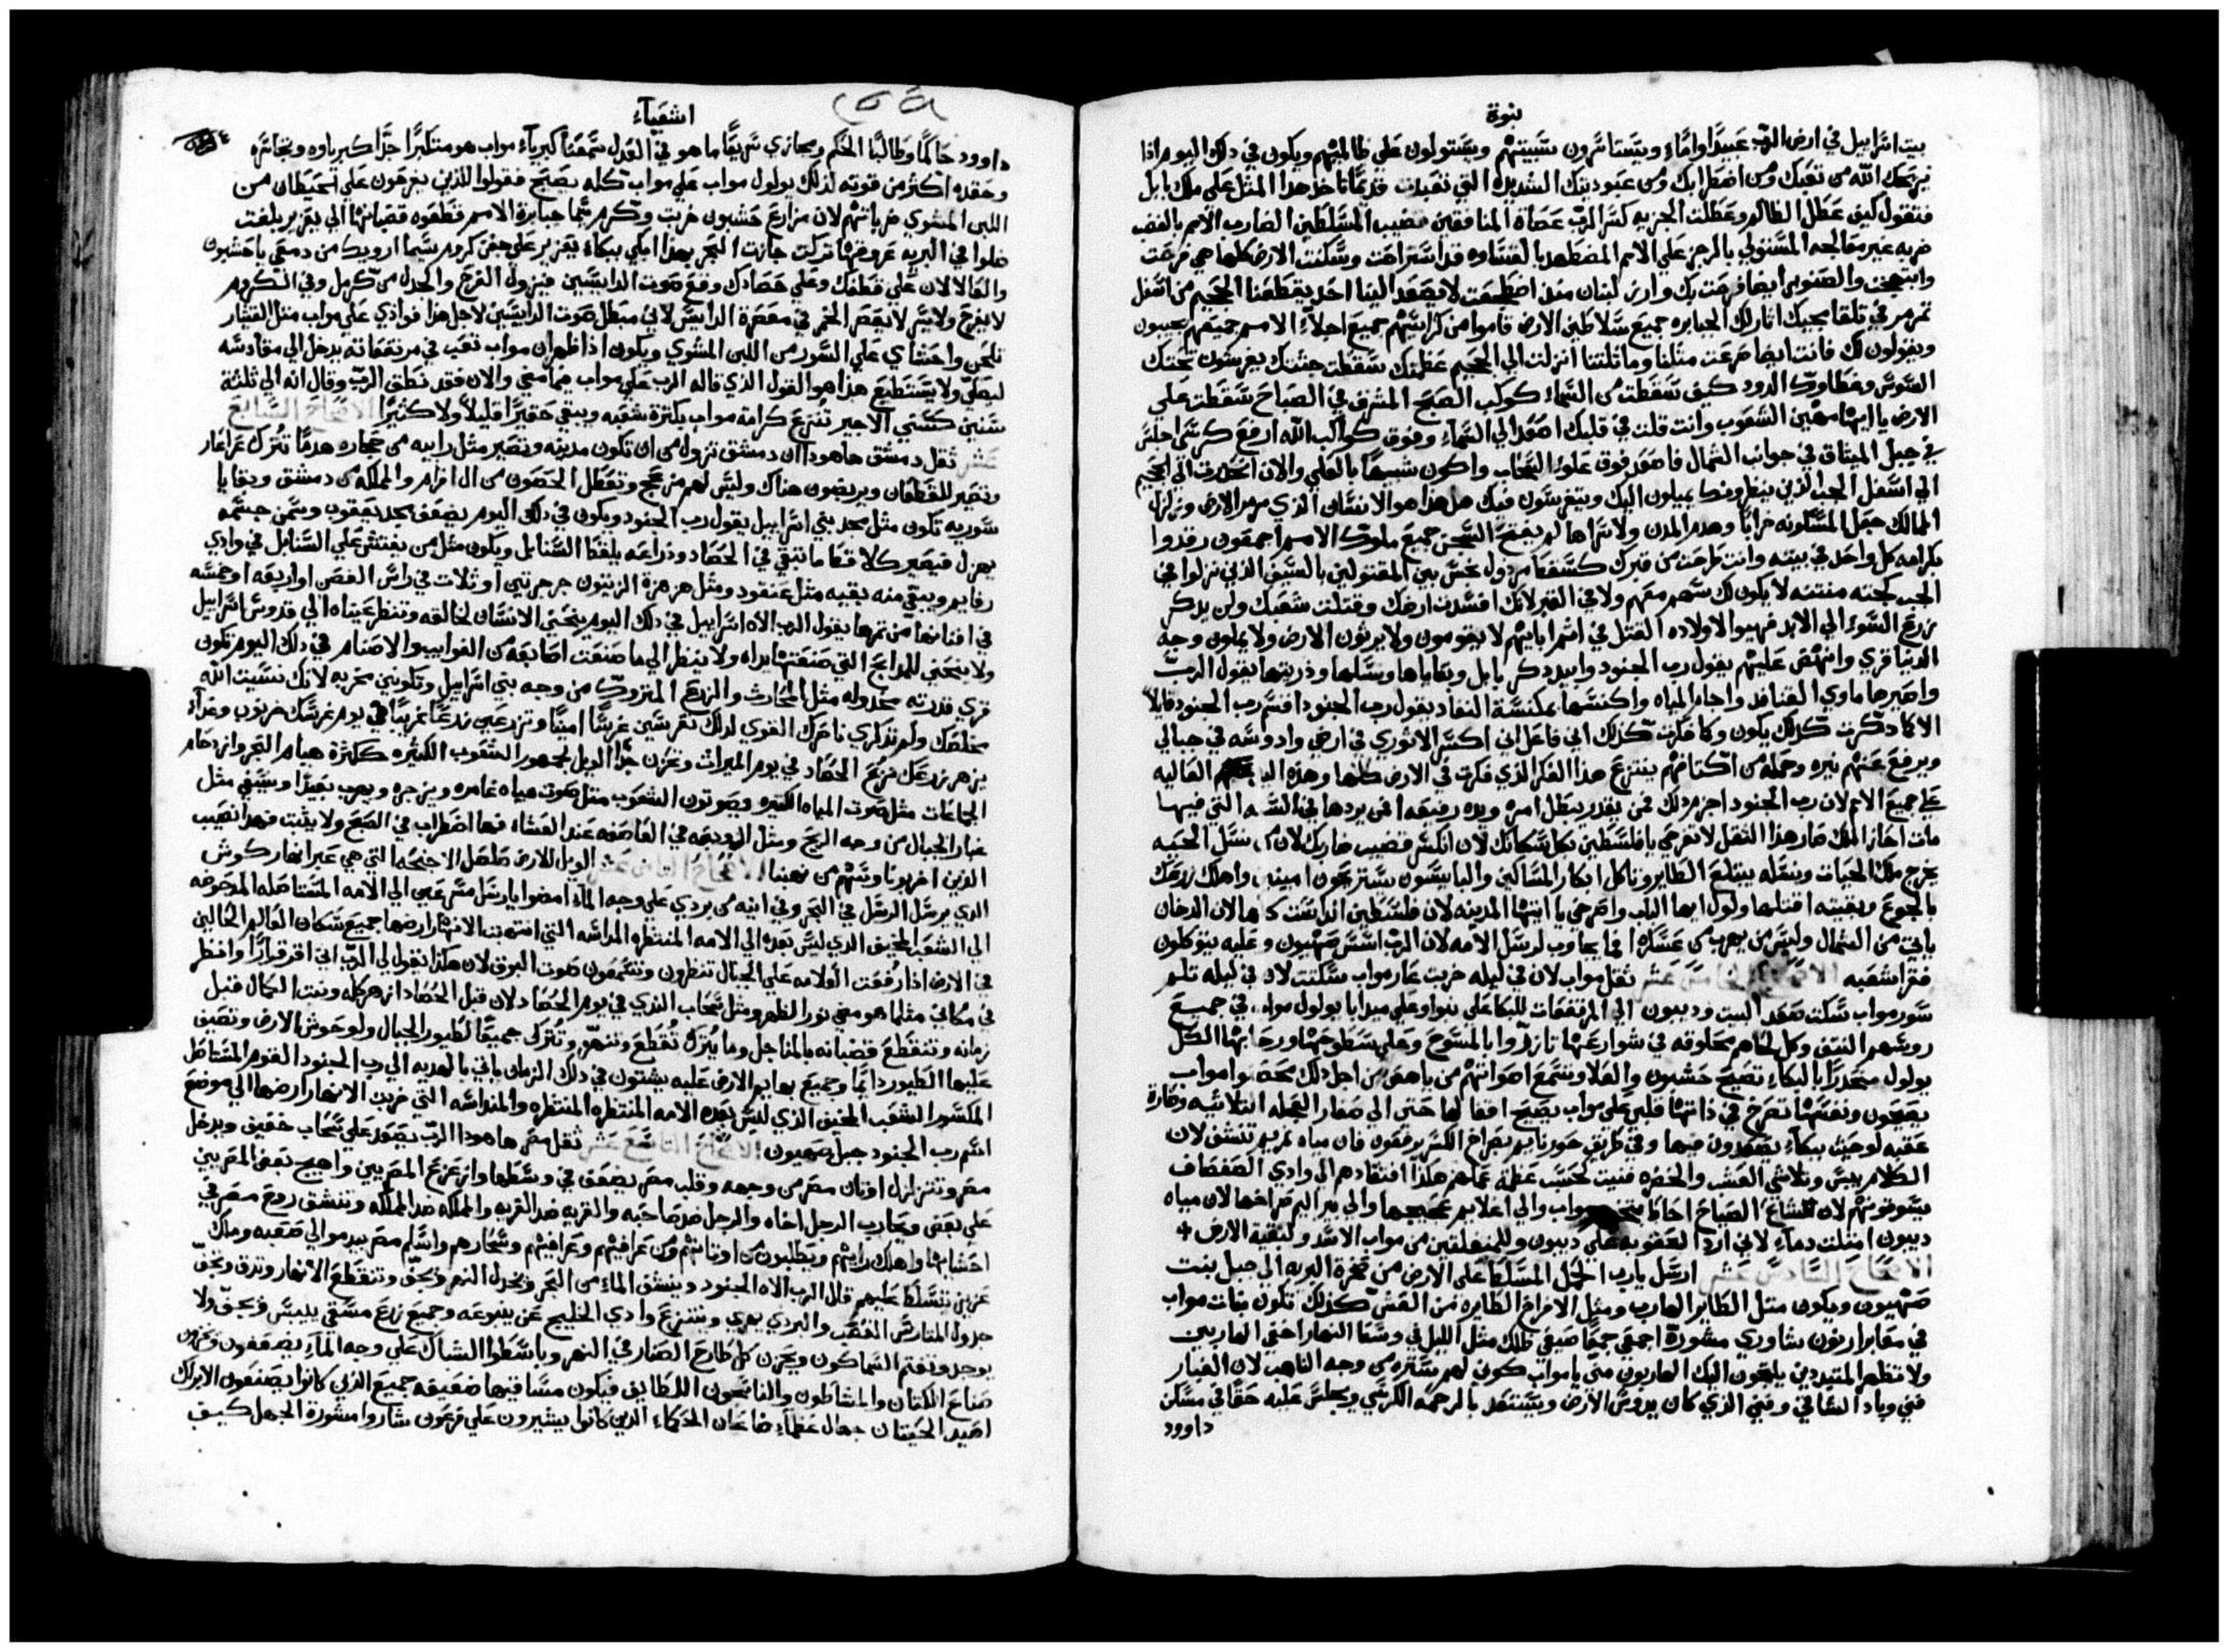 نبوة
بيت اسراييل في ارض الرب عبيدًا واماء ويستاسرون مسبييهم ويستولون على ظالميهم ويكون في ذلك اليوم اذا
يريحك الله من تعبك ومن اضطرابك ومن عبوديتك الشديده التي تعبدت قديمًا تاخذ هذا المثل على ملك بابل
فتقول كيف عطل الظالم وعطلت الجزيه كسر الرب عصاة المنافقين قضيب المسلطين الضارب الامم بالغضب
ضربه غير معالجه المستولي بالرجز على الامم المضطهد بالقساوه قد استراحت وسكنت الارض كلها هي فرحت
وابتهجت والصنوبر ايضا فرحت بك وارز لبنان منذ اضطجعت لا يصعد الينا احد يقطعنا الجحيم من اسفل
تمرمر في تلقا مجيك اثار لك الجبابره جميع سلاطين الارض قاموا من كراسيهم جميع اجلاء الامم جميعهم يجيبون
ويقولون لك فانت ايضا ضرعت مثلنا وماثلتنا انزلت الي الجحيم عظمتك سقطت جثتك يفرشون تحتك
السوس وغطاوك الدود كيف سقطت من السماء كوكب الصبح المشرق في الصباح سقطت علي
الارض يا ايها مهين الشعوب وانت قلت في قلبك اصعد الي السماء وفوق كواكب الله ارفع كرسي اجلس
في جبل الميثاق في جوانب الشمال فاصعد فوق علو السحاب واكون شبيها بالعلي والان انحدرت الي الجحيم
الي اسفل الجب الذين ينظرونك يميلون اليك ويتفرسون فيك هل هذا هو الانسان الذي مرمر الارض وزلزل
الممالك جعل المسكونه خرابا وهدم المدن ولاسراها لم يفتح السجن جميع ملوك الامم اجمعون رقدوا
بكرامه كل واحد في بيته وانت طرحت من قبرك
الجب كجثه منتنه لا يكون لك شهم معهم ولا في القبر لانك افسدت ارضك وقتلت شعبك ولن يذكر
زرع السوء الي الابد فهيوا لاولاده القتل في اثم ابايهم لا يقومون ولا يرثون الارض ولا يملون وجه
الدنيا قري وانهض عليهم يقول رب الجنود وابيد ذكر بابل وبقاياها ونسلها وذريتها يقول الرب
واصيرها ماوي القنافد واجام المياه واكنسها بمكنسة النفاد يقول رب الجنود اقسم رب الجنود قايلا
الا كما ذكرت كذلك يكون وكما فكرت كذلك اني فاعل اني اكسر الاثوري في ارضي وادوسه في جبالي
ويرفع عنهم نيره وحمله من اكتافهم ينتزع هذا الفكر الذي فكرت في الارض كلها وهذه اليد العاليه
علي جميع الامم لان رب الجنود احزم ذلك فمن يقدر يبطل امره ويده رفيعه فمن يردها في السنه التي فيها
مات احاز الملك صار هذا الثقل لا تفرحي يا فلسطين بكل سكانك لان انكسر قضيب ضاربك لان من نسل الحيه
يخرج ملك الحيات ونسله يبتلع الطاير وتاكل ابكار المساكين والبايسون يستريحون امينين واهلك زرعك
بالجوع وبقيته اقتلها ولول ايها الباب واصرخي يا ايتها المدينه لان فلسطين اندكت كلها لان الدخان
ياتي من الشمال وليس من يهرب من عسكره فما يجاوب لرسل الامه لان الرب اسس صهيون وعليه يتوكلون
فقرا شعبه الاصحاح الخامس عشر ثقل مواب لان في ليله خربت عار مواب سكتت لان في ليله تلم
سور مواب سكت صعد البيت وديبون الي المرتفعات للبكا علي نبوا وعلي ميدابا يولول مواب في جميع
روسهم النتف وكل لحاهم محلوقه في شوارعها تازروا بالمسوح وعلي سطوحها ورحابها الكل
يولول منحدرًا بالبكاء تصيح حشبون والعلا وسمع اصواتهم من ياهص من اجل ذلك محصنوا مواب
يصيحون ونفسها تصرخ في ذاتها قلبي على مواب يصيح اقفالها حتى الي صغار العجله الثلاثيه وفي
عقبه لوحيث ببكاء يصعدون فيها وفي طريق حورنايم بصراخ الكسر يرفعون فان مياه نمريم تنشف لان
الكلاء يبس وتلاشي العشب والخضره فنيت كحسب عظمة عملهم هكذا افتقادهم الي وادي الصفصاف
يسوقونهم لان الصياح احاط تخم مواب والي اغلايم عجيجها والي بير اليم صراخها لان مياه
ديبون امتلت دماء لاني ازيد العقوبه على ديبون وللمنفلتين من مواب الاسد ولبقية الارض +
الاصحاح السادس عشر ارسل يا رب الحمل المسلط على الارض من صخرة البريه الي جبل بنت
صهيون ويكون مثل الطاير الهارب ومثل الافراخ الطايره من العش كذلك تكون بنات مواب
في مقابر ارنون شاوري مشورة اجمعي جمعًا ضعي ظلك مثل الليل في وسط النهار اخفي الهاربين
ولا تظهر المتبددين يلجون اليك الهاربون مني يا مواب كوني لهم ستره من وجه الناهب لان الغبار
فني وباد الشاقي وفني الذي كان يدوس الارض ويستعد بالرحمه الكرسي ويجلس عليه حقا في مسكن
داوود
اشعياء
داوود حاكمًا وطالبًا الحكم ويجازي سريعًا ما هو في العدل سمعنا كبرياء مواب هو متكبرًا جدًا كبرياوه وتجاسره
وحقده اكثر من قوته لذلك يولول مواب على مواب كله يصيح فقولوا للذين يفرحون على الحيطان من
اللبن المشوي ضرباتهم لان مزارع حشبون خربت وكرم سبما جبابرة الامم قطعوه قضبانها الي يعزير بلغت
ضلوا في البرية عروضها تركت جازت البحر بهذا ابكي ببكاء يعزير على جفن كرم سبما ارويك من دمعي يا حشبون
والعالا لان على قطفك وعلي حصادك وقع صوت الدايسين فيزول الفرح والجدل من كرمل وفي الكروم
لا يفرح ولا يسر لا يعصر الخمر في معصرة الدايس لاني مبطل صوت الدايسين لاجل هذا فوادي على مواب مثل القيثار
تلحن واحشاي على السور من اللبن المشوي ويكون اذا ظهر ان مواب تعب في مرتفعاته يدخل الي مقادسه
ليصلي ولا يستطيع هذا هو القول الذي قاله الرب على مواب فيما مضي والان فقد نطق الرب وقال انه الي ثلثة
سنين كسني الاجير تنتزع كرامة مواب بكثرة شعبه ويبقي حقيرًا قليلًا ولا كثيرًا الاصحاح السابع
عشر ثقل دمشق ها هوذا ان دمشق تزول من ان تكون مدينه وتصير مثل رابيه من حجاره هدمًا تترك عراعار
وتصير للقطعان ويربضون هناك وليس لهم مزعج وتعطل الحصون من ال افرام والمملكه من دمشق وبقايا
سوريه تكون مثل مجد بني اسراييل يقول رب الجنود ويكون في ذلك اليوم يضعف مجد يعقوب وسمن جسمه
يهزل فيصير كلاقط ما تبقي في الحصاد وذراعه يلقط السنابل ويكون مثل من يفتش على السنابل في وادي
رفايم ويبقي منه بقيه مثل عنقود ومثل هزهزة الزيتون حبتين او ثلاث في راس الغصن او اربعه او خمسه
في افنانها من ثمرها يقول الرب الاه اسراييل في ذلك اليوم ينحني الانسان لخالقه وتنظر عيناه الي قدوس اسراييل
ولا ينحني للمذابح التي صنعتها يداه ولا ينظر الي ما صنعت اصابعه من الغوابيب والاصنام في ذلك اليوم تكون
قري قدرته مخذوله مثل المحارث والزرع المتروك من وجه بني اسراييل وتكونين مخربه لانك نسيت الله
مخلصك ولم تذكري ناصرك القوي لذلك تغرسين غرسًا امينًا وتزرعين زرعًا غريبًا في يوم غرسك خرنوب وغداء
يزهر زرعك نزع الحصاد في يوم الميراث وتحزن جدًا الويل لجمهور الشعوب الكثيره ككثرة هيام البحر وازدحام
الجماعات مثل صوت المياه الكثيره ويصوتون الشعوب مثل صوت مياه غامره وينزجره ويهرب بعيدًا ويسبي مثل
غبار الجبال من وجه الريح ومثل الزوبعه في العاصفه عند العشاء فها اضطراب في الصبح ولا يثبت فهذا نصيب
الذين اخربونا وسهم من نهبنا الاصحاح الثامن عشر الويل للارض صلصل الاجنحه التي هي عبر انهار كوش
الذي يرسل الرسل في البحر وفي انيه من بردي على وجه الماء امضوا يا رسل مسرعين الي الامه المستاصله المرضوضه
الي الشعب المخيف الذي ليس بعده الي الامه المنتظره المداسه التي انتهبت الانهار ارضها جميع سكان العالم الحالين
في الارض اذا رفعت العلامه على الجبال تنظرون وتسمعون صوت البوق لان هكذا يقول لي الرب اني اقر قرارًا وانظر
في مكاني مثلما هو مضي نور الظهر ومثل سحاب الندي في يوم الحصاد لان قبل الحصاد ازهر كله ونبت الكمال قبل
زمانه وتنقطع قضبانه بالمناجل وما يترك تقطع وتنهر وتترك جميعًا لطيور الجبال ولوحوش الارض وتصيف
عليها الطيور دايمًا وجميع بهايم الارض عليه يشتون في ذلك الزمان ياتي بالهديه الي رب الجنود القوم المستاصل
المكسور الشعب المخيف الذي ليس بعده الامه المنتظره المنتظره والمنداسه التي خربت الانهار ارضها الي موضع
اسم رب الجنود جبل صهيون الاصحاح التاسع عشر ثقل مصر ها هوذا الرب يصعد على سحاب خفيف ويدخل
مصر وتتزلزل اوثان مصر من وجهه وقلب مصر يضعف في وسطها وازعزع المصريين واهيج بعض المصريين
على بعض ويحارب الرجل اخاه والرجل ضد صاحبه والقريه ضد القريه والمملكه ضد المملكه وتنشق روح مصر في
احشايها واهلك رايهم ويطلبون من اوثانهم ومن عرافيهم وسحارهم واسلم مصر بيد موالي صعبه وملك
عزيز يتسلط عليهم قال الرب الاه الجنود وينشف الماء من البحر ويخذل النهر ويجف وتنقطع الانهار وترق وتجف
جدول المتارس القصب والبردي يعري وينتزع وادي الخليج عن ينبوعه وجميع زرع مسقي ييبس ويجف ولا
يوجد وتغتم السماكون ويحزن كل طارح الصنار في النهر وباسطوا الشباك على وجه الماء يضعفون ويخزون
صناع الكتان والمشاطون والناسجون اللطايف فيكون مساقيها ضعيفه جميع الذين كانوا يصنعون الابراك
لصيد الحيتان جهال عظماء صاعان الحكماء الذين كانوا يشيرون على فرعون شاروا مشورة الجهل كيف